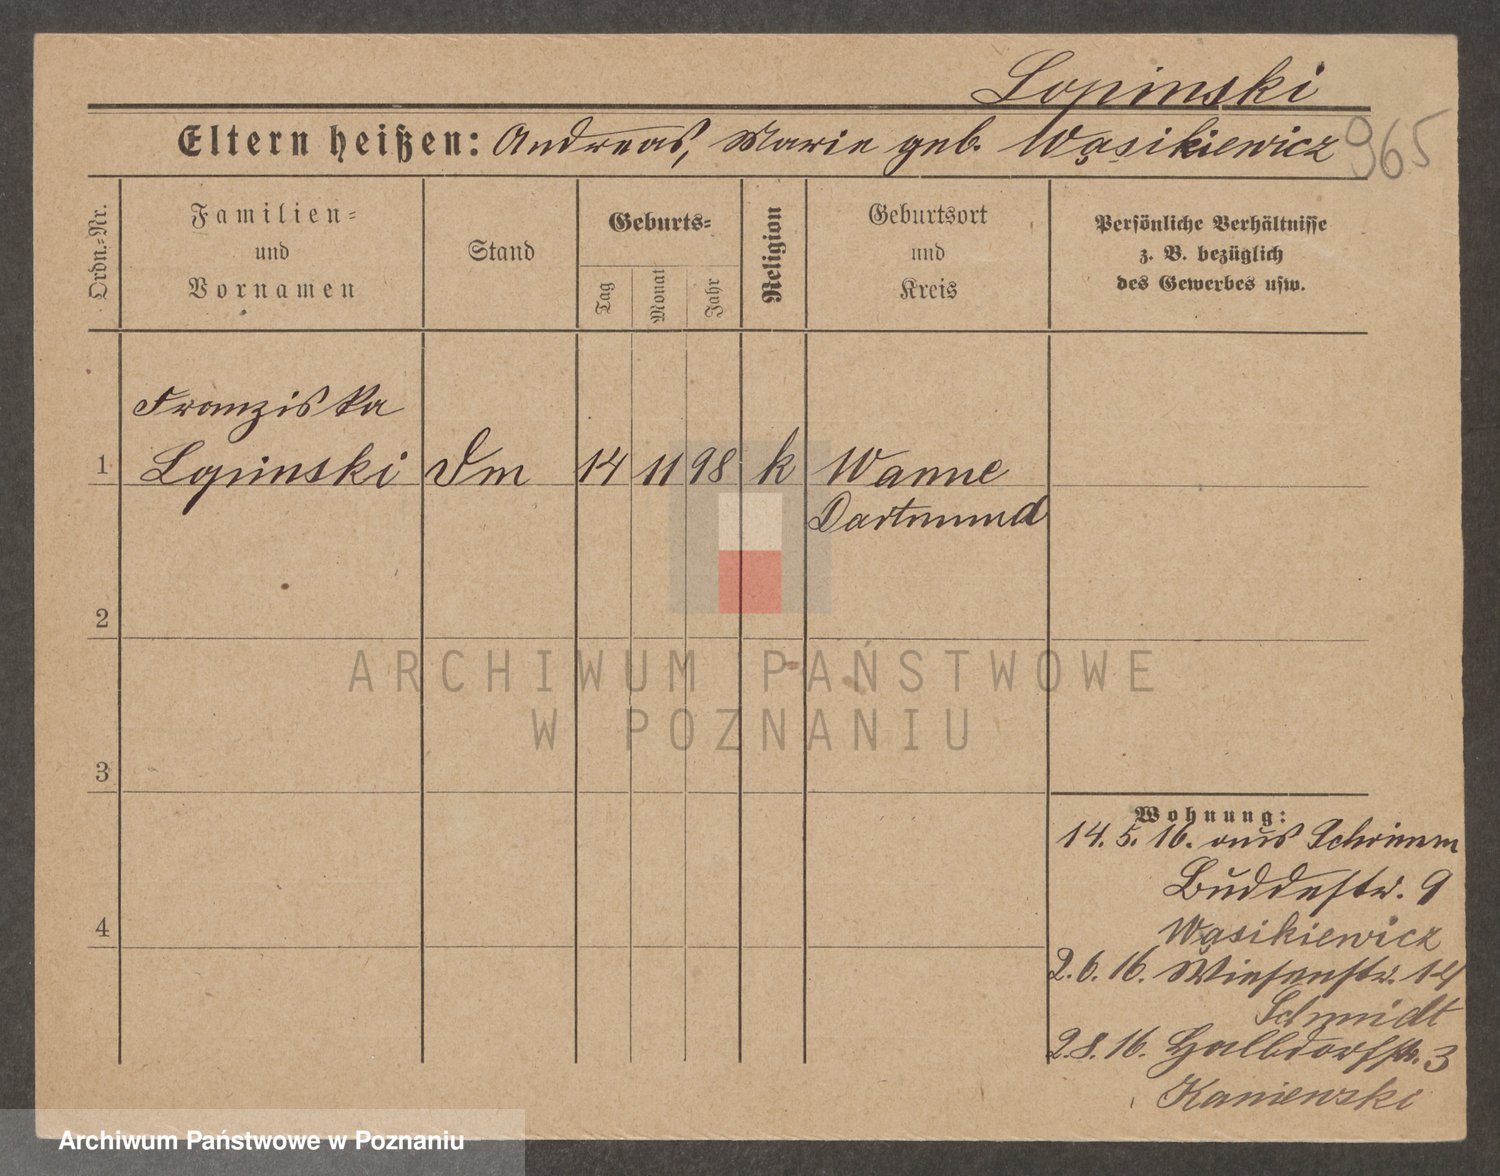 Lopinski
Eltern heißen: Andreas, Marie geb. Wąsikiewicz
965
Ordn.=Nr.
Familien=
und
Vornamen
Stand
Geburts=
Tag
Monat
Jahr
Religion
Geburtsort
und
Kreis
Persönliche Verhältnisse
z. B. bezüglich
des Gewerbes usw.
Franziska
1 Lopinski Dm 14 11 98 k Wanne
Dortmund
2
ARCHIWUM PAŃSTWOWE
W POZNANIU
3
Wohnung:
14. 5. 16. aus Schrimm
Buddestr. 9
4
Wąsikiewicz
2. 6. 16. Wiesenstr. 14
Schmidt
2. 8. 16. Halbdorfstr. 3
Kaniewski
Archiwum Państwowe w Poznaniu